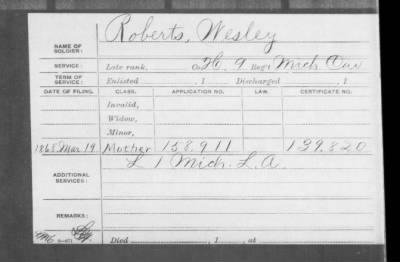 Roberts, Wesley
NAME OF SOLDIER:
SERVICE: Late rank, Co. H, 9 Reg't Mich Cav
TERM OF SERVICE: Enlisted , 1 Discharged , 1
DATE OF FILING. CLASS. APPLICATION NO. LAW. CERTIFICATE NO.
Invalid,
Widow,
Minor,
1868 Mar 19 Mother 158.911 139.820
L 1 Mich. L. A.
ADDITIONAL SERVICES:
REMARKS:
Died , 1 , at